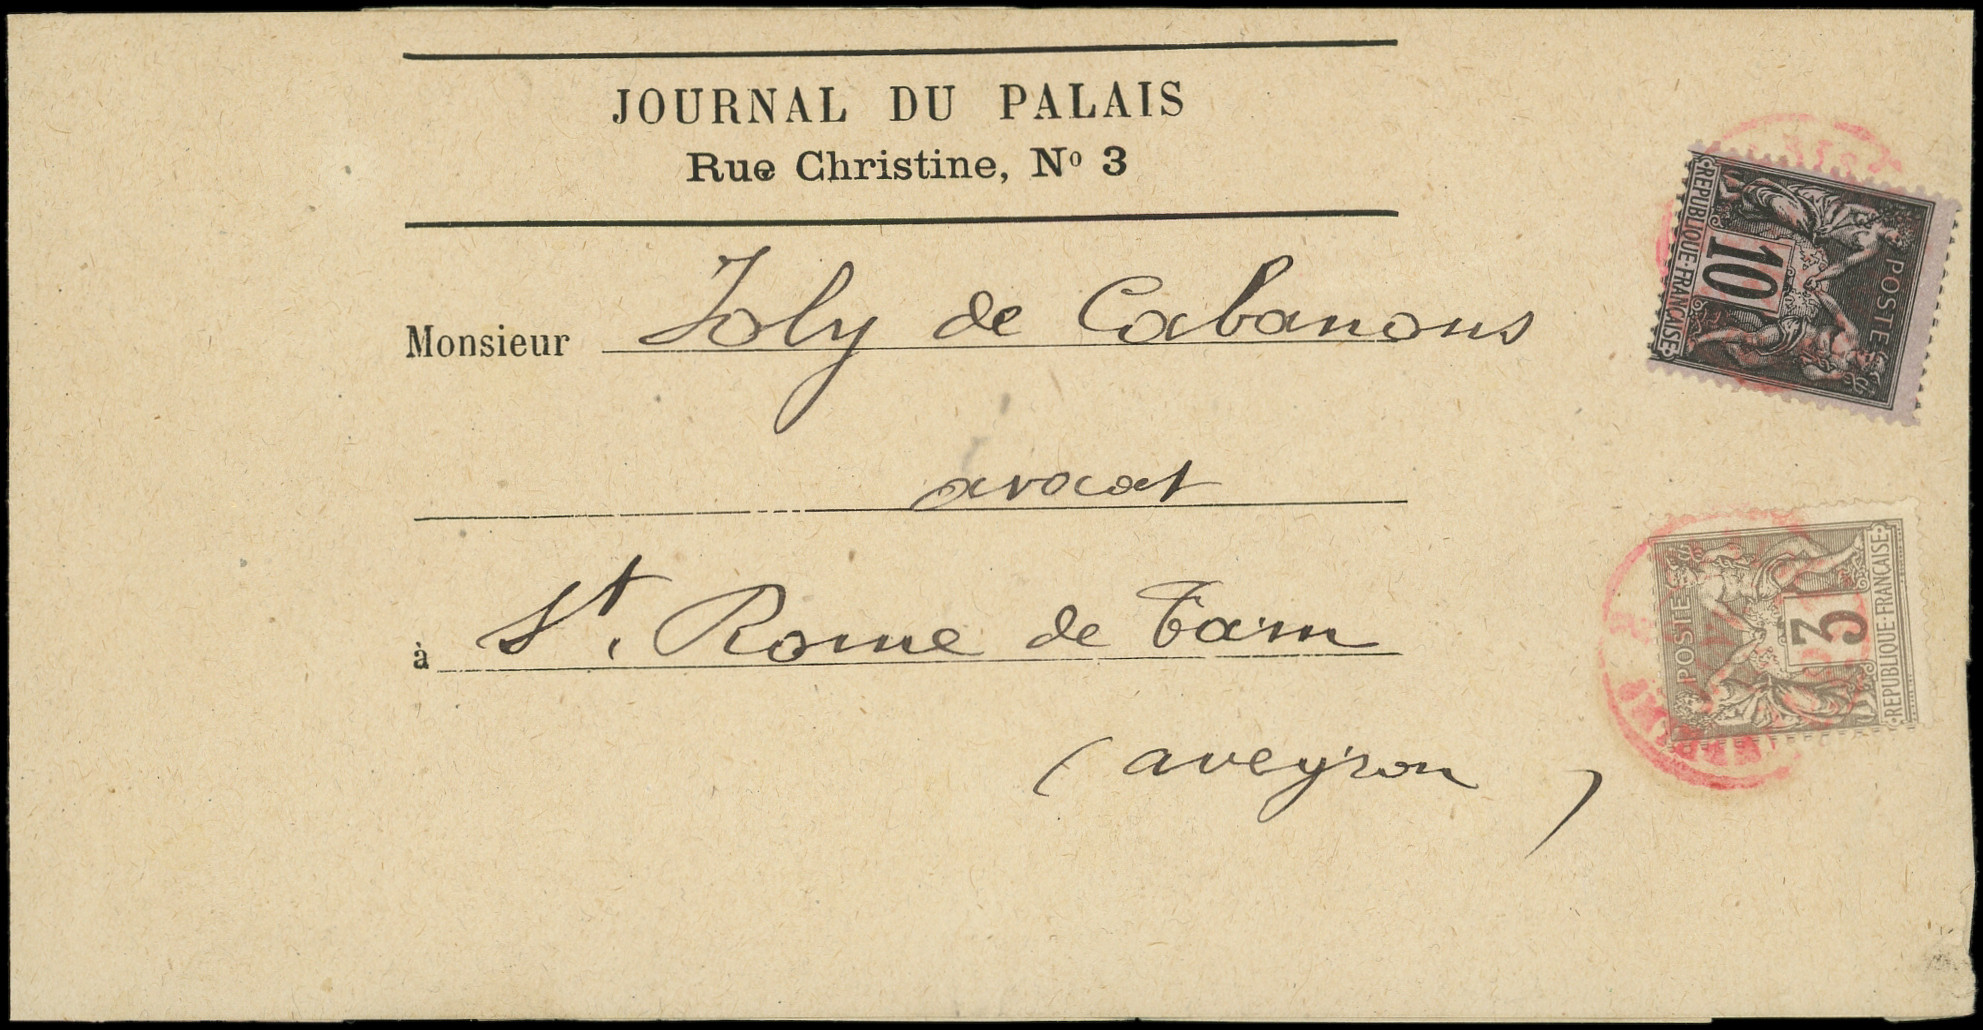 JOURNAL DU PALAIS
Rue Christine, Nº 3
Monsieur Joly de Cabanous
avocat
à St. Rome de Tarn
(aveyron)
POSTES
10
REPUBLIQUE·FRANÇAISE
POSTES
3
REPUBLIQUE·FRANÇAISE